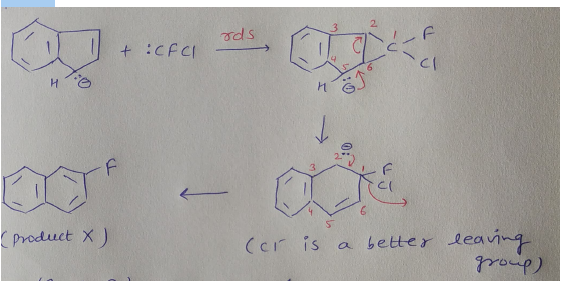 + :CFCl rds
H ⊖
3 2 1 F
C
Cl
4 5 6
H ⊖
⊖
3 2 1 F
Cl
4 5 6
F
(product X)
(Cl⁻ is a better leaving
group)